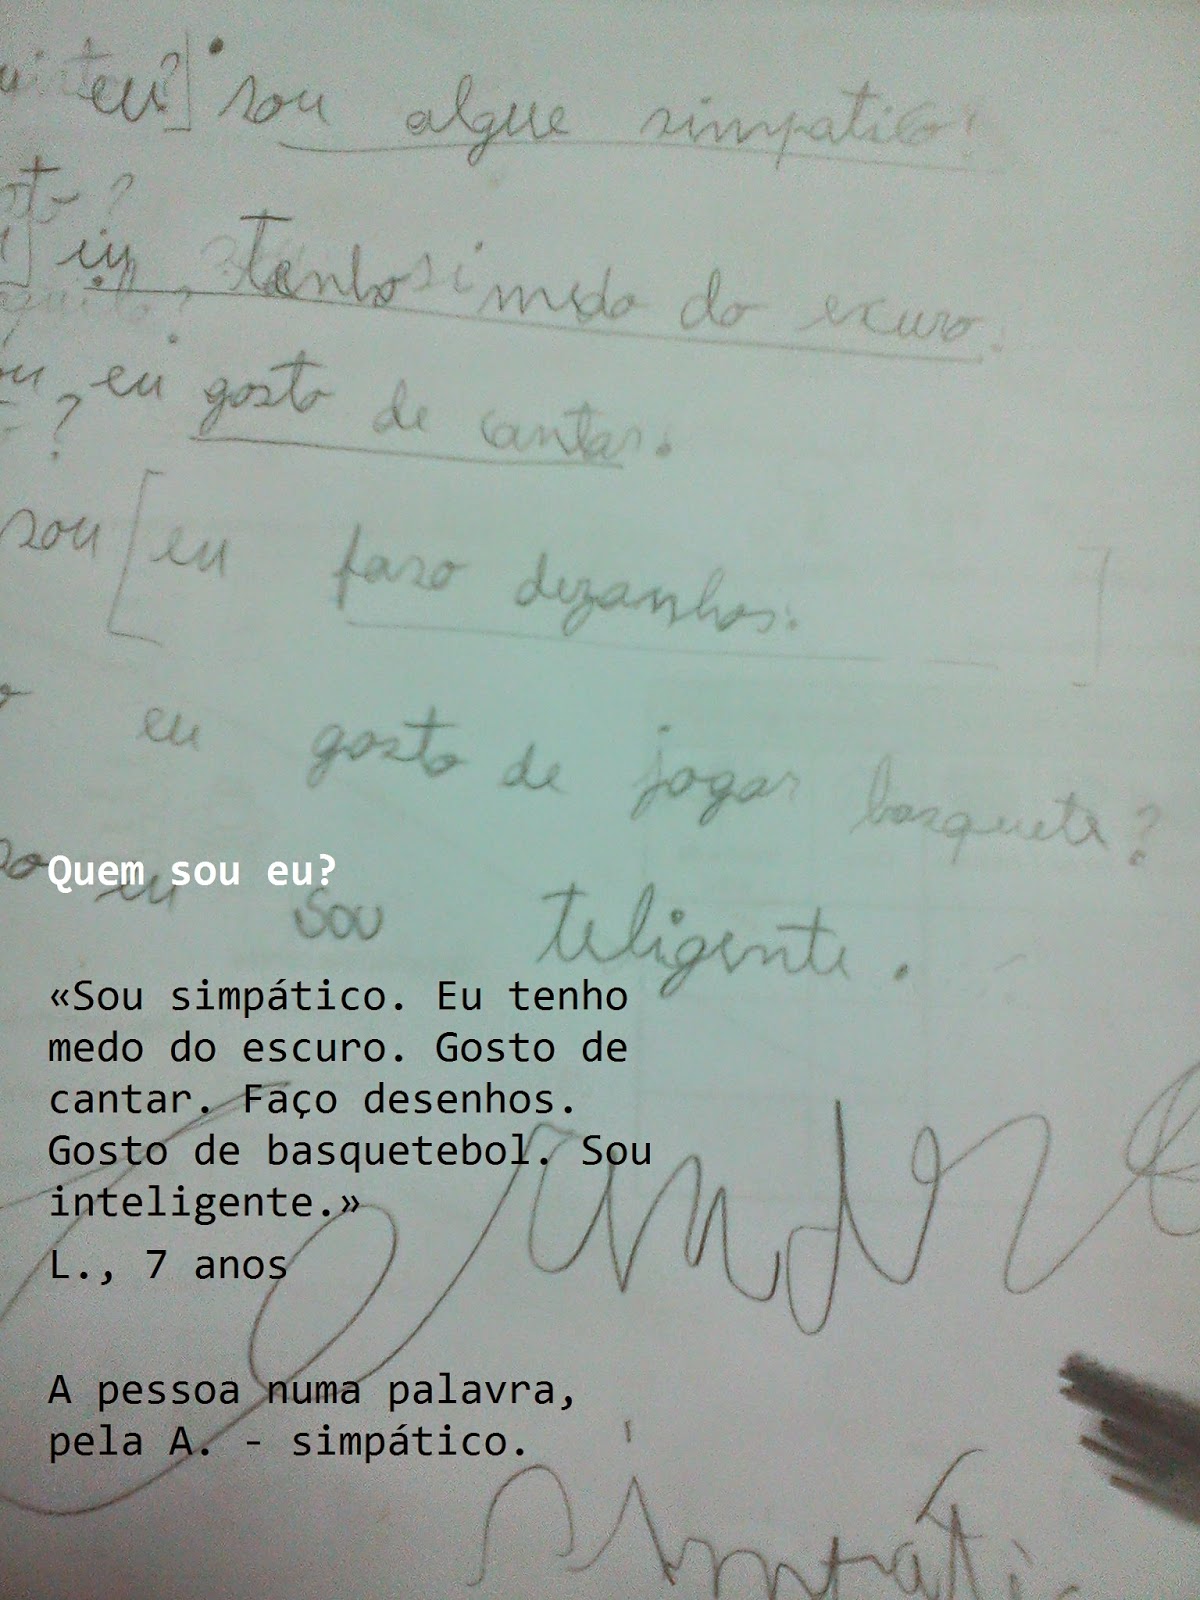 eu?] sou algue simpatico!
sto ?
eu tenho si medo do escuro.
ou eu gosto de cantar.
?
sou [eu faso dezanhos. ]
eu gosto de jogar basquete?
Quem sou eu?
eu sou teligente.
«Sou simpático. Eu tenho
medo do escuro. Gosto de
cantar. Faço desenhos.
Gosto de basquetebol. Sou
inteligente.»
L., 7 anos
A pessoa numa palavra,
pela A. - simpático.
simpáti